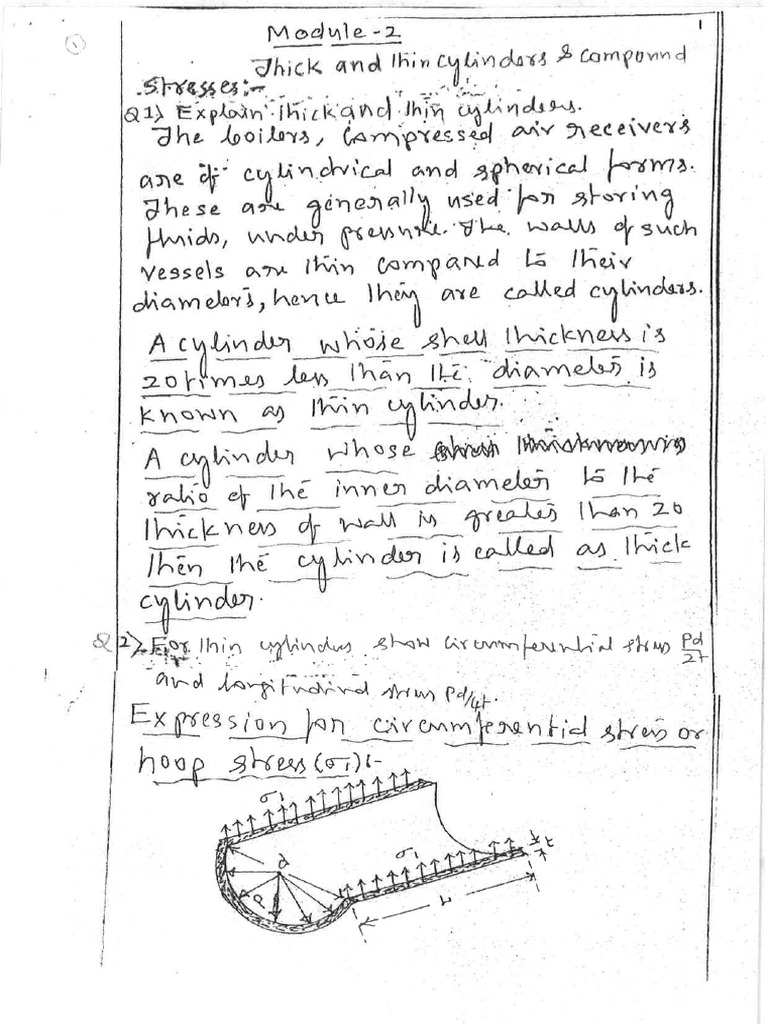 1
1
Module-2
Thick and thin cylinders & compound
stresses:-
Q1) Explain thick and thin cylinders.
The boilers, compressed air receivers
are of cylindrical and spherical forms.
These are generally used for storing
fluids, under pressure. The walls of such
vessels are thin compared to their
diameters, hence they are called cylinders.
A cylinder whose shell thickness is
20 times less than the diameter is
known as thin cylinder.
A cylinder whose
ratio of the inner diameter to the
thickness of wall is greater than 20
then the cylinder is called as thick
cylinder.
Q 2) For thin cylinders show circumferential stress Pd/2t
and longitudinal stress Pd/4t.
Expression for circumferential stress or
hoop stress (σ1):-
σ1
d
P
σ1
t
L